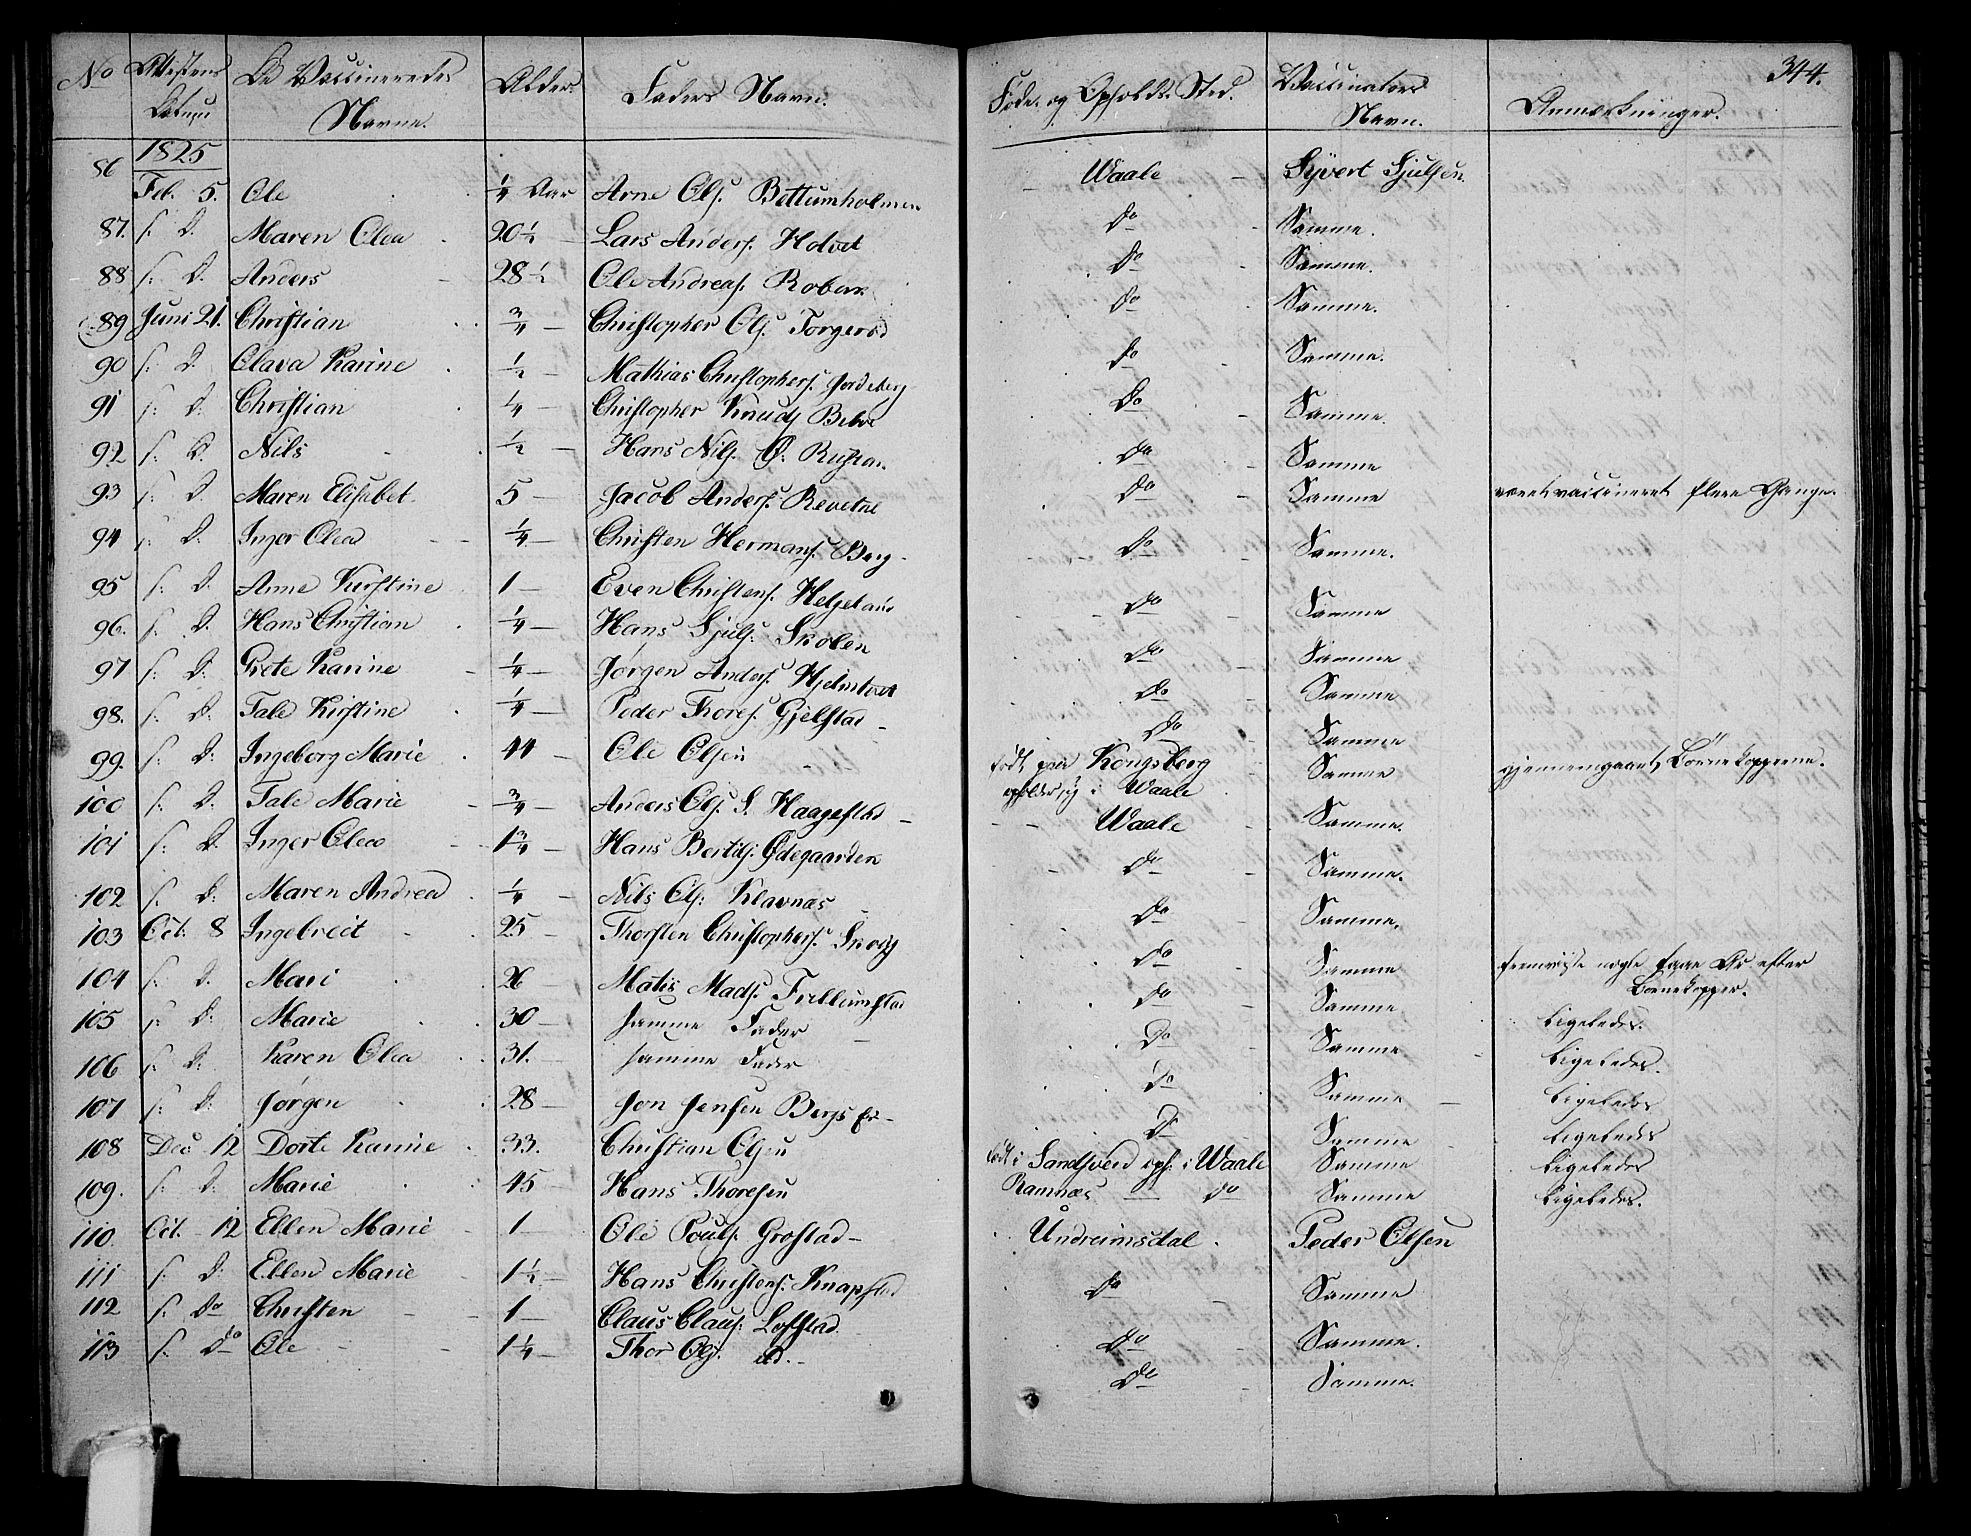 No Attestens Datum De Vaccineredes Navne. Alder. Faders Navn. Føde- og Opholds-Sted. Vaccinators Navn. Anmærkninger. 344.
1825
86 Feb. 5. Ole 1/4 Aar Arne Ols. Bettumholmen Waale Syvert Sjulsen
87. s. D. Maren Olea 20 1/2 Lars Anders. Holvet Do Samme.
88 s. D. Anders 28 1/2 Ole Andreas. Do Samme.
89 Juni 21. Christian 3/4 Christopher Ols. Torgersd Do Samme.
90 s. D. Olava Karine 1/2 Mathias Christophers. Do Samme.
91 s: D: Christian 1/4 Christopher Knuds Do Samme.
92 s: D. Nils 1/2 Hans Nils. Do Samme
93 s: D. Maren Elisabet 5 Jacob Anders. Revetne Do Samme vaccineret flere Gange.
94 s: D. Inger Olea 1/4 Christen Hermans. Berg Do Samme.
95 s: D. Anne Kirstine 1 Even Christens. Helgeland Do Samme
96. s. D. Hans Christian 1/4 Hans Sjuls. Skolen Do Samme
97 s: D: Grete Karine 1/4 Jørgen Anders. Hjelmtvet Do Samme
98. s: D: Tale Kirstine 1/4 Peder Thores. Gjelstad Do Samme
99. s: D: Ingeborg Marie 44 Ole Olsen født paa Kongsberg opholder sig i Waale Samme gjennemgaaet Börnekopperne.
100 s: D. Tale Marie 3/4 Anders Ols. S. Haagestad Waale Samme.
101 s: D. Inger Olea 1 3/4 Hans Bertils. Ødegaarden Do Samme.
102 s: D: Maren Andrea 1/4 Nils Ols: Klavnæs Do Samme.
103 Oct. 8 Ingebrect 25 Thorsten Christophers. Skovg Do Samme fremviste nogle faae Ar efter Börnekopper.
104 s: D. Mari 26 Matis Mads. Do Samme Ligeledes.
105 s: D: Marie 30 samme Fader Do Samme Ligeledes.
106 s: D. Karen Olea 31. samme Fader Do Samme Ligeledes
107 s: D: Jørgen 28 Jon Jensen Bergs Do Samme Ligeledes
108 Dec 12 Dorte Karine 33. Christian Olsen født i Sandsverd oph: i Waale Samme Ligeledes
109. s: D: Marie 45 Hans Thoresen Ramnæs do Samme Ligeledes.
110 Oct. 12 Ellen Marie 1 Ole Pouls. Grostad Undrumsdal Peder Olsen
111 s: D: Ellen Marie 1 1/2 Hans Christens. Knapstad Do Samme
112 s: Do Christen 1 Claus Claus: Lofstad Do Samme.
113 s: Do Ole 1 1/4 Thor Ols. ibd. Do Samme.